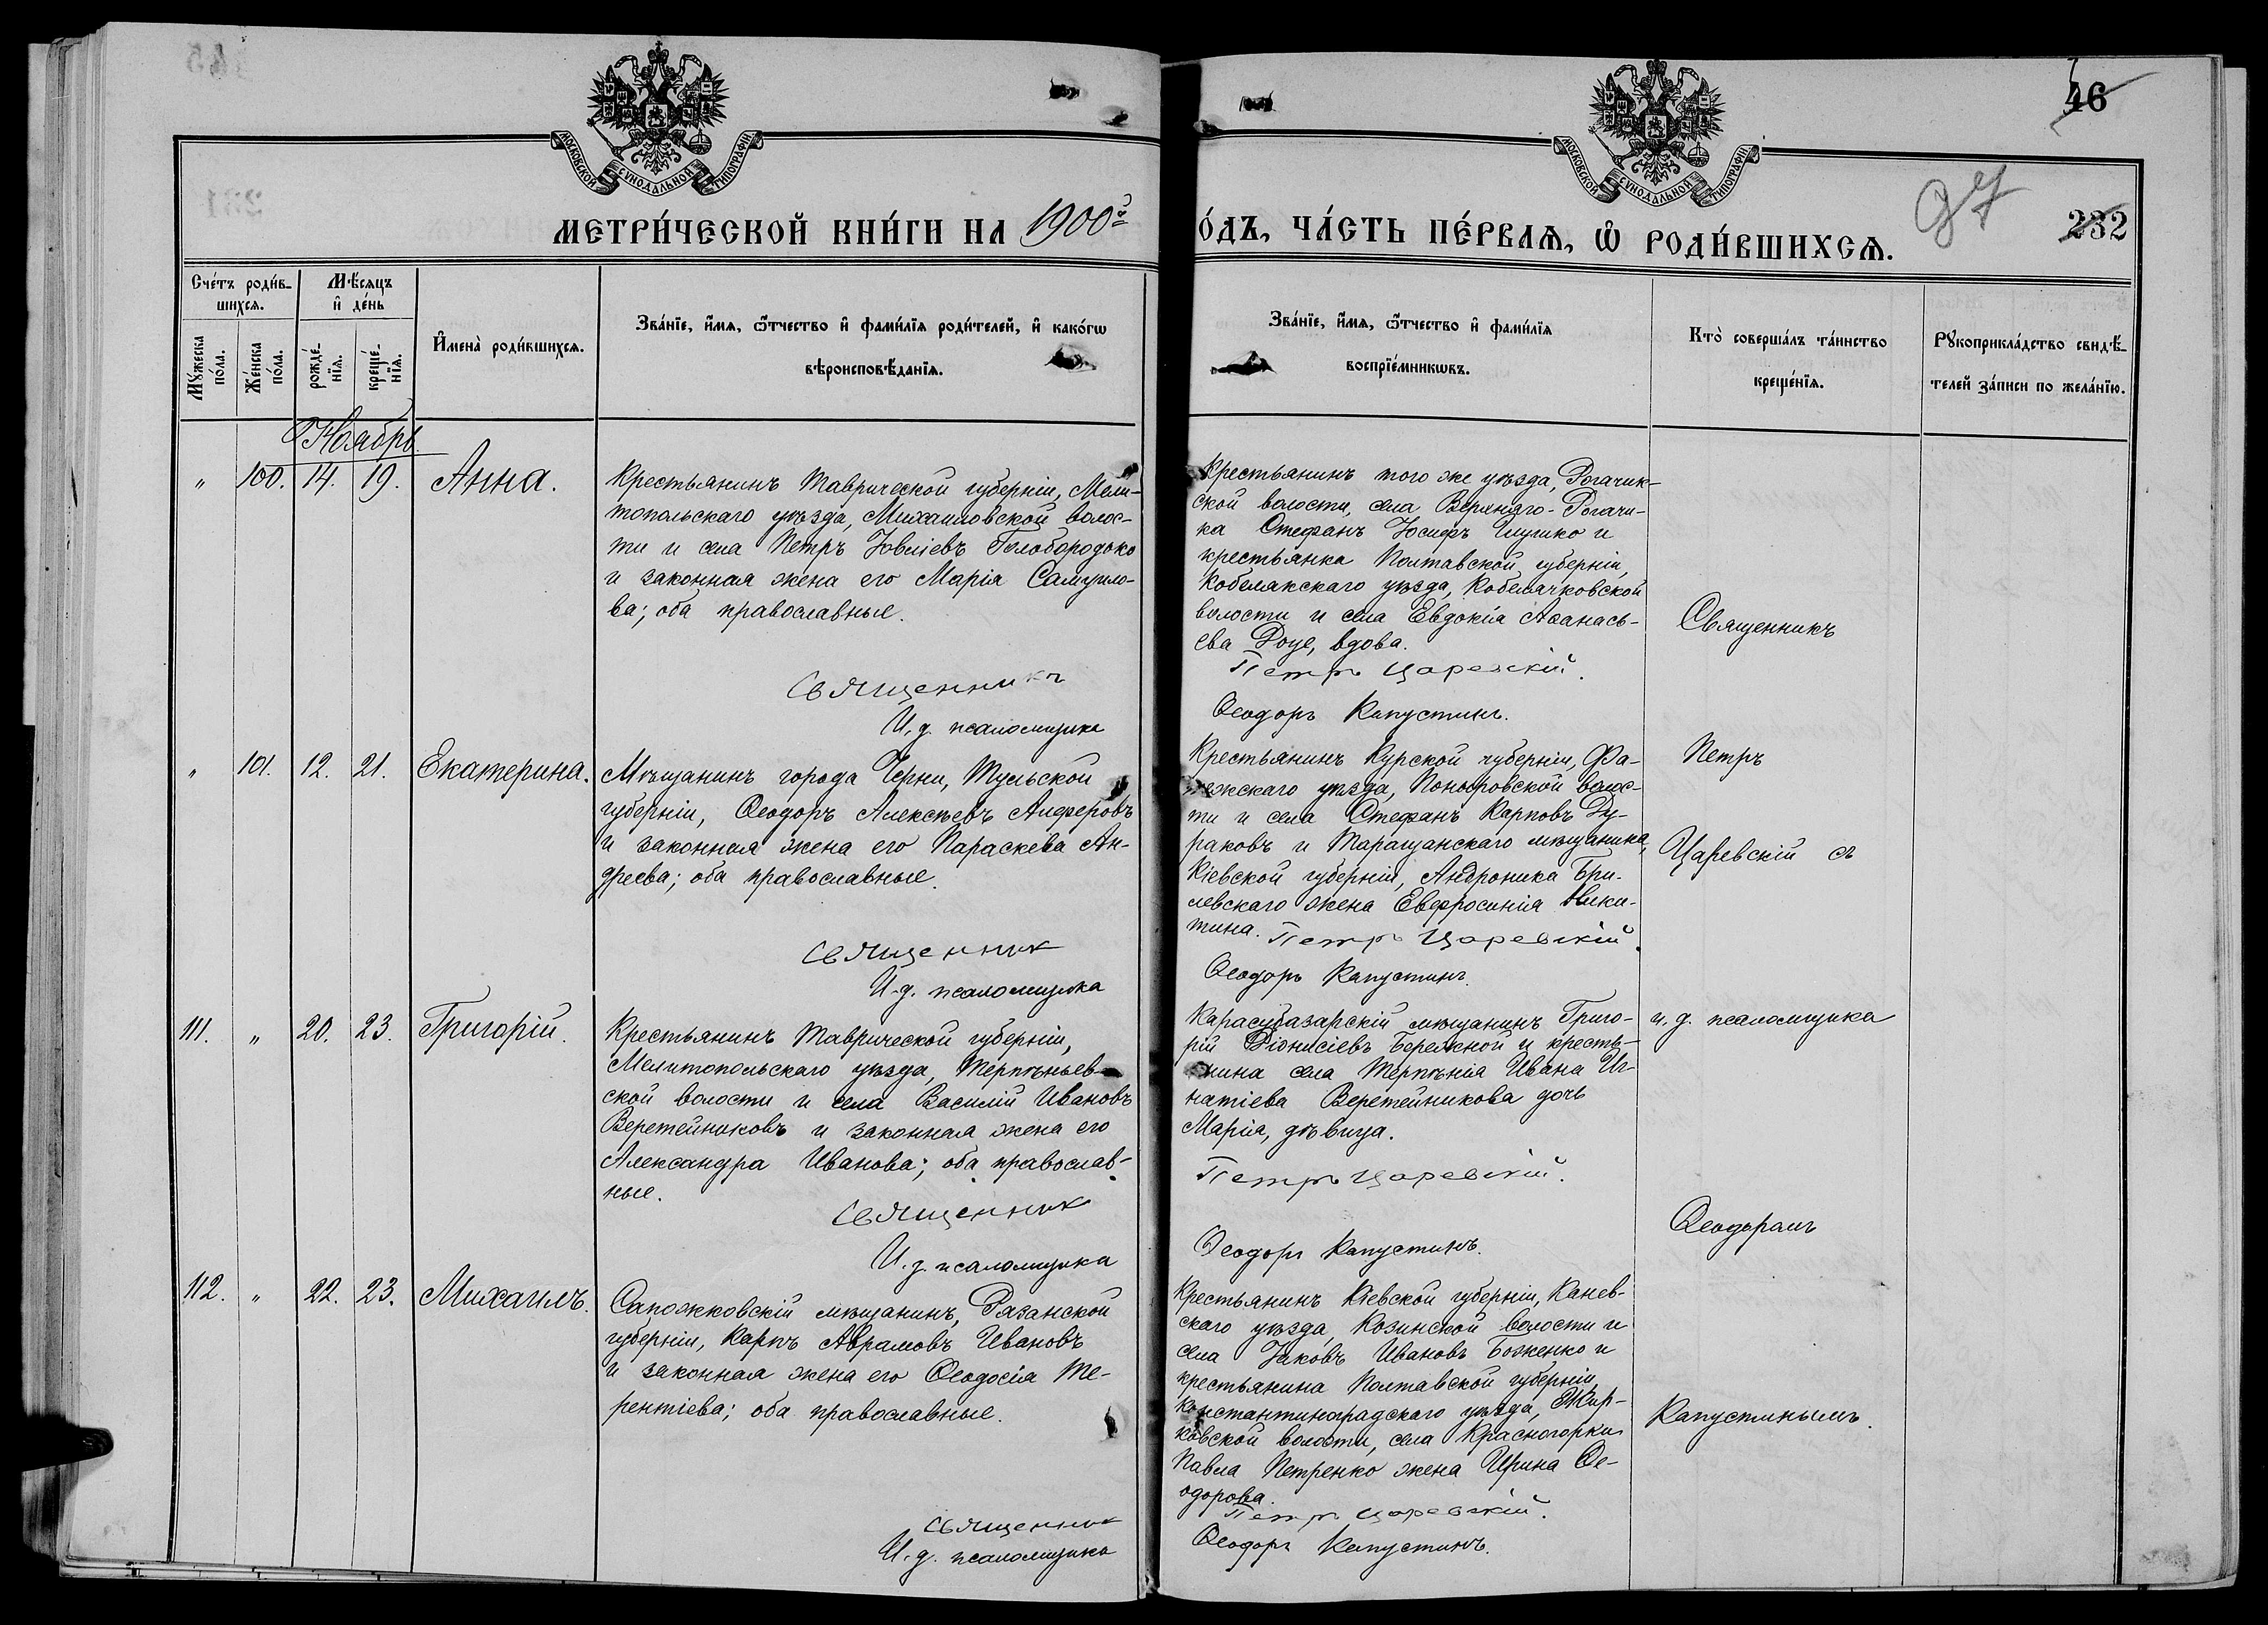 46
МОСКОВСКОЙ СѴНОДАЛЬНОЙ ТИПОГРАФІИ
МОСКОВСКОЙ СѴНОДАЛЬНОЙ ТИПОГРАФІИ
97
232
МЕТРИ́ЧЕСКОЙ КНИ́ГИ НА 1900й
О́ДЪ, ЧА́СТЬ ПЕ́РВАѦ, Ѿ РОДИ́ВШИХСѦ.
Сче́тъ роди́в-
шихсѧ.
Мѣ́сѧцъ
и҆ де́нь
Мꙋ́жеска
по́ла.
Же́нска
по́ла.
рожде́-
нїѧ.
креще́-
нїѧ.
И҆мена̀ роди́вшихсѧ.
Зва́нїе, и҆́мѧ, ѻ҆́тчество и҆ фами́лїѧ роди́телей, и҆ како́гѡ
вѣроисповѣ́данїѧ.
Зва́нїе, и҆́мѧ, ѻ҆́тчество и҆ фами́лїѧ
воспрїе́мникѡвъ.
Кто̀ соверша́лъ та́инство
креще́нїѧ.
Рꙋкоприкла́дство свидѣ́-
телей за́писи по жела́нїю.
Ноябрь
" 100. 14. 19. Анна.
Крестьянинъ Таврической губерніи, Мели-
топольскаго уѣзда, Михайловской волос-
ти и села Петръ Іовліевъ Голобородько
и законная жена его Марія Самуило-
ва; оба православные.
Священникъ
И. д. псаломщика
Крестьянинъ того же уѣзда, Рогачик-
ской волости, села Верхняго-Рогачи-
ка Стефанъ Іосифъ Глушко и
крестьянка Полтавской губерніи,
Кобелякскаго уѣзда, Кобелячковской
волости и села Евдокія Аѳанась-
ева Роуе, вдова.
Петръ Царевскій.
Ѳеодоръ Капустинъ.
" 101. 12. 21. Екатерина.
Мѣщанинъ города Черни, Тульской
губерніи, Ѳеодоръ Алексѣевъ Алферовъ
и законная жена его Параскева Ан-
дреева; оба православные.
Священник
И. д. псаломщика
Крестьянинъ Курской губерніи, Фа-
тежскаго уѣзда, Поныровской волос-
ти и села Стефанъ Карповъ Ду-
раковъ и Таращанскаго мѣщанина,
Кіевской губерніи, Андроника Бри-
левскаго жена Евфросинія Ники-
тина.
Петръ Царевскій.
Ѳеодоръ Капустинъ.
111. " 20. 23. Григорій.
Крестьянинъ Таврической губерніи,
Мелитопольскаго уѣзда, Терпѣньев-
ской волости и села Василій Ивановъ
Веретейниковъ и законная жена его
Александра Иванова; оба православ-
ные.
Священник
И. д. псаломщика
Карасубазарскій мѣщанинъ Григо-
рій Діонисіевъ Бережной и кресть-
янина села Терпѣнія Ивана Иг-
натіева Веретейникова дочь
Марія, дѣвица.
Петръ Царевскій.
Ѳеодоръ Капустинъ.
112. " 22. 23. Михаилъ.
Сапожковскій мѣщанинъ, Рязанской
губерніи, Карпъ Аврамовъ Ивановъ
и законная жена его Ѳеодосія Те-
рентіева; оба православные.
Священник
И. д. псаломщика
Крестьянинъ Кіевской губерніи, Канев-
скаго уѣзда, Козинской волости и
села Іаковъ Ивановъ Боженко и
крестьянина Полтавской губерніи,
Константиноградскаго уѣзда, Жир-
ковской волости, села Красногорки
Павла Петренко жена Ирина Ѳе-
одорова.
Петръ Царевскій.
Ѳеодоръ Капустинъ.
Священникъ
Петръ
Царевскій съ
и. д. псаломщика
Ѳеодоромъ
Капустинымъ.